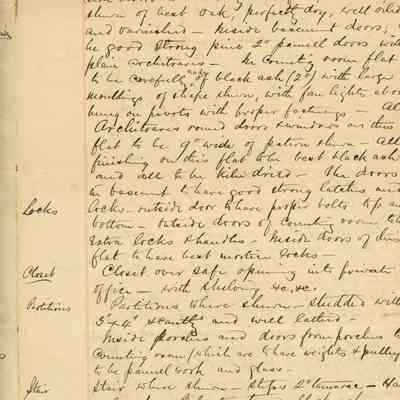 shewn of best oak, perfectly dry, well oiled
and varnished - Inside basement doors, to
be good strong pine 2" pannell doors with
plain architraves - In Counting room flat
to be carefully made of black ash (2") with large
mouldings of shape shewn, with fan lights above
hung on pivots with proper fastenings - All
Architraves round doors & windows on this
flat to be 9" wide of pattern shewn - All
finishing on this flat to be best black ash
and all to be kiln dried - The doors
in basement to have good strong latches and
Locks locks - outside door to have proper bolts top and
bottom - Outside doors of Counting room to have
Extra locks & handles - Inside doors of this
flat to have best mortice locks -
Closet Closet over safe opening into private
office - with shelving &c, &c.
Partitions Partitions where shewn - studded with
3 x 4" scantg and well lathed -
Inside porches and doors from porches to
Counting room (which are to have weights & pulleys
to be pannel work and glass -
Stair Stair where shewn - steps 2" tamarac - Ha